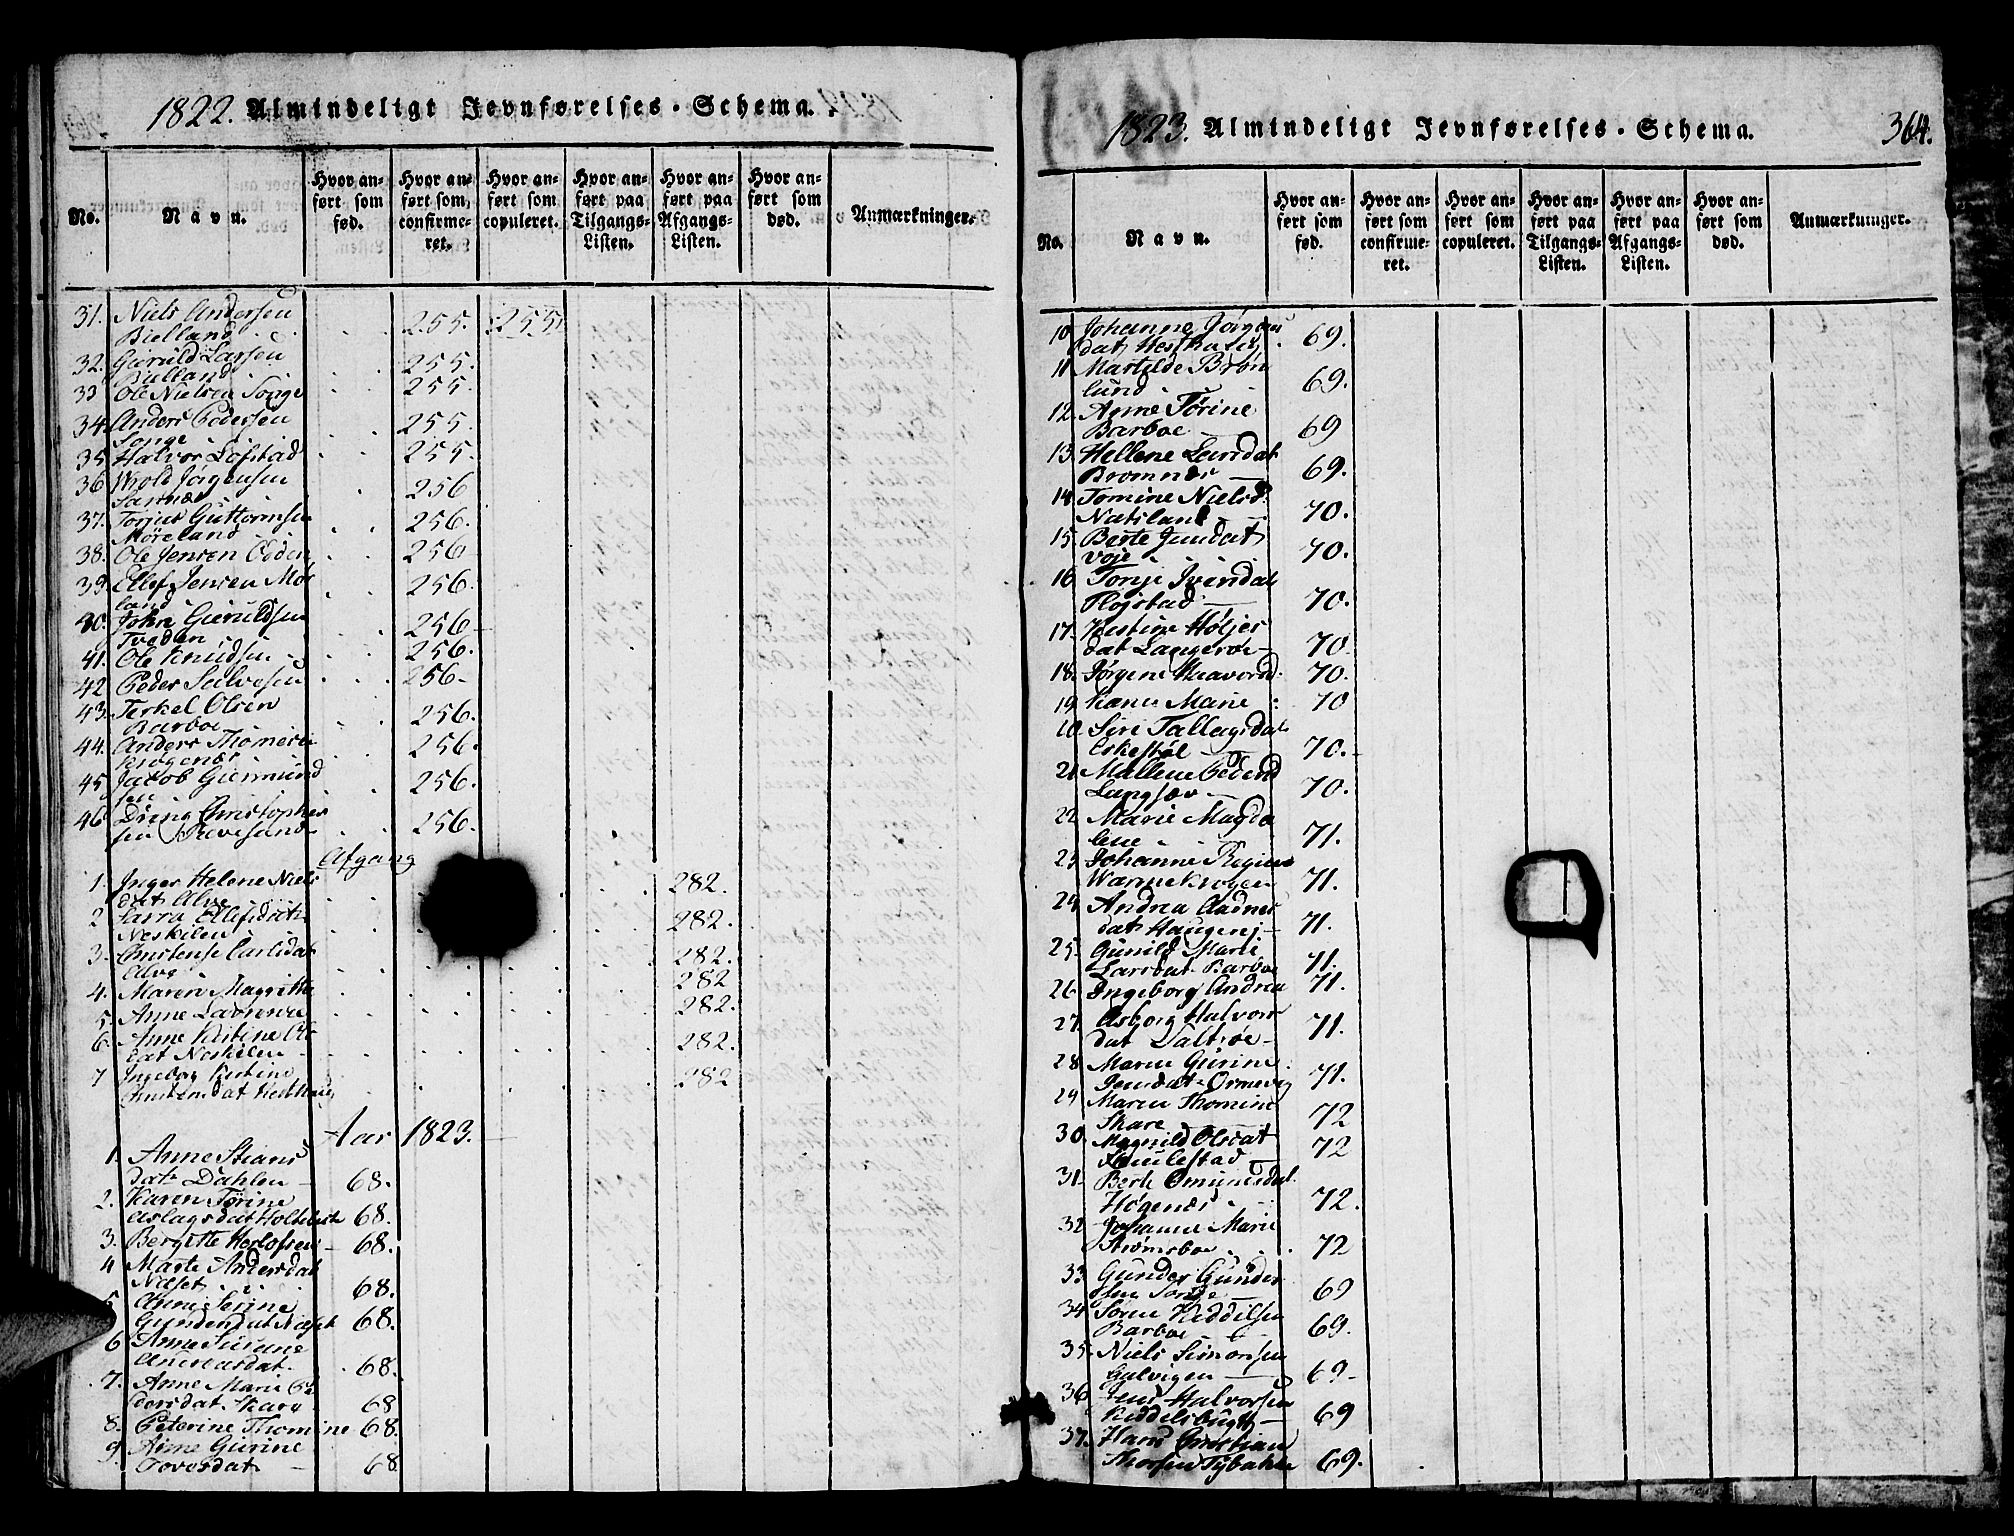 1822. Almindeligt Jevnførelses-Schema.
No.
Navn.
Hvor anført som fød.
Hvor anført som confirmeret.
Hvor anført som copuleret.
Hvor anført paa Tilgangs-Listen.
Hvor anført paa Afgangs-Listen.
Hvor anført som død.
Anmærkninger.
31. Niels Andersen
Bielland . . 255. 255.
32. Gunuld Larsen
Bielland . . 255.
33 Ole Nielsen Songe . . 255.
34. Anders Pedersen
Songe . . 255.
35. Halvor Lofstad . . 255.
36 Wrold Jørgensen
Sannæs . 256
37. Torjus Guttormsen
Møreland . . 256.
38. Ole Jensen . . 256
39. Ellef Jensen Mør
land . . 256.
40. John Gunuldsen
Tveden . . 256
41. Ole Knudsen . . 256.
42 Peder Salvesen . . 256.
43. Terkel Olsen
Barboe . . 256.
44. Anders Thomesen
Krøgenes . . 256.
45 Jacob Giermund
sen . . 256.
46 Christopher
sen Revesand . . 256.
Afgang
1. Inger Helene Niels
dat Alve 282.
2 Sarra Ellefsdat
Neskilen 282.
3. Christense Carlsdat
Alve 282.
4. Maren Magrethe 282
5. Anne Laurense 282.
6. Anne Kistine Ol
dat Neskilen 282.
7 Ingeborg Kistine
282
Aar 1823.
1. Anne Stians
dat Dahlen 68.
2. Karen Tørine
Aslagsdat 68.
3. Bergitte Herlofsen 68.
4 Marte Andersdat
Næset 68.
5. Anne Serine
Gundersdat Næset 68.
6 Anne Susane
Andreasdat. 68.
7. Anne Marie
dersdat Skare 68
8. Peterine Thomine 68.
9. Anne Gurine
Tovesdat 68
1823. Almindeligt Jevnførelses-Schema. 364.
No.
Navn.
Hvor anført som fød.
Hvor anført som confirmeret.
Hvor anført som copuleret.
Hvor anført paa Tilgangs-Listen.
Hvor anført paa Afgangs-Listen.
Hvor anført som død.
Anmærkninger.
10. Johanne Jørgens
dat 69.
11 Martilde Brøn
lund 69.
12. Anne Tørine
Barboe 69
13. Hellene Larsdat
Bromnæs 69.
14. Tomine Nielsd.
Natsland 70.
15. Berte Jensdat
Voje 70.
16. Torje Iversdat
Fløjstad 70.
17. Kistine Høljer
dat Langerøe 70.
18. Jørgine Haavorsd. 70.
19. Karen Marie 70
20. Siri Tallagsdat
Eskestøl 70.
21. Mallene Pedersd
Langsæv 70.
22 Marie Magda
lene 71.
23. Johanne Regine
Warmekrogen 71.
24 Andrea Aadnes
dat Haugenej 71.
25. Gunild Marie
Larsdat Barboe 71.
26 Ingeborg Andrea 71.
27. Asborg Halvors
dat Saltrøe 71.
28 Maren Gurine
Jensdat Ormevig 71.
29 Maren Thomine
Skare 72
30. Magnild Olsdat
72
31. Berte Omundsdat.
Høgenæs 72.
32 Johanne Marie
Strømsboe 72
33. Gunder Gunder
sen Songe 69
34. Søren Kiddilsen
Barboe 69.
35. Niels Simonsen
Gulvigen 69.
36. Jens Halvorsen
69
37. Hans Christian
Thorsen Tybakken 69.